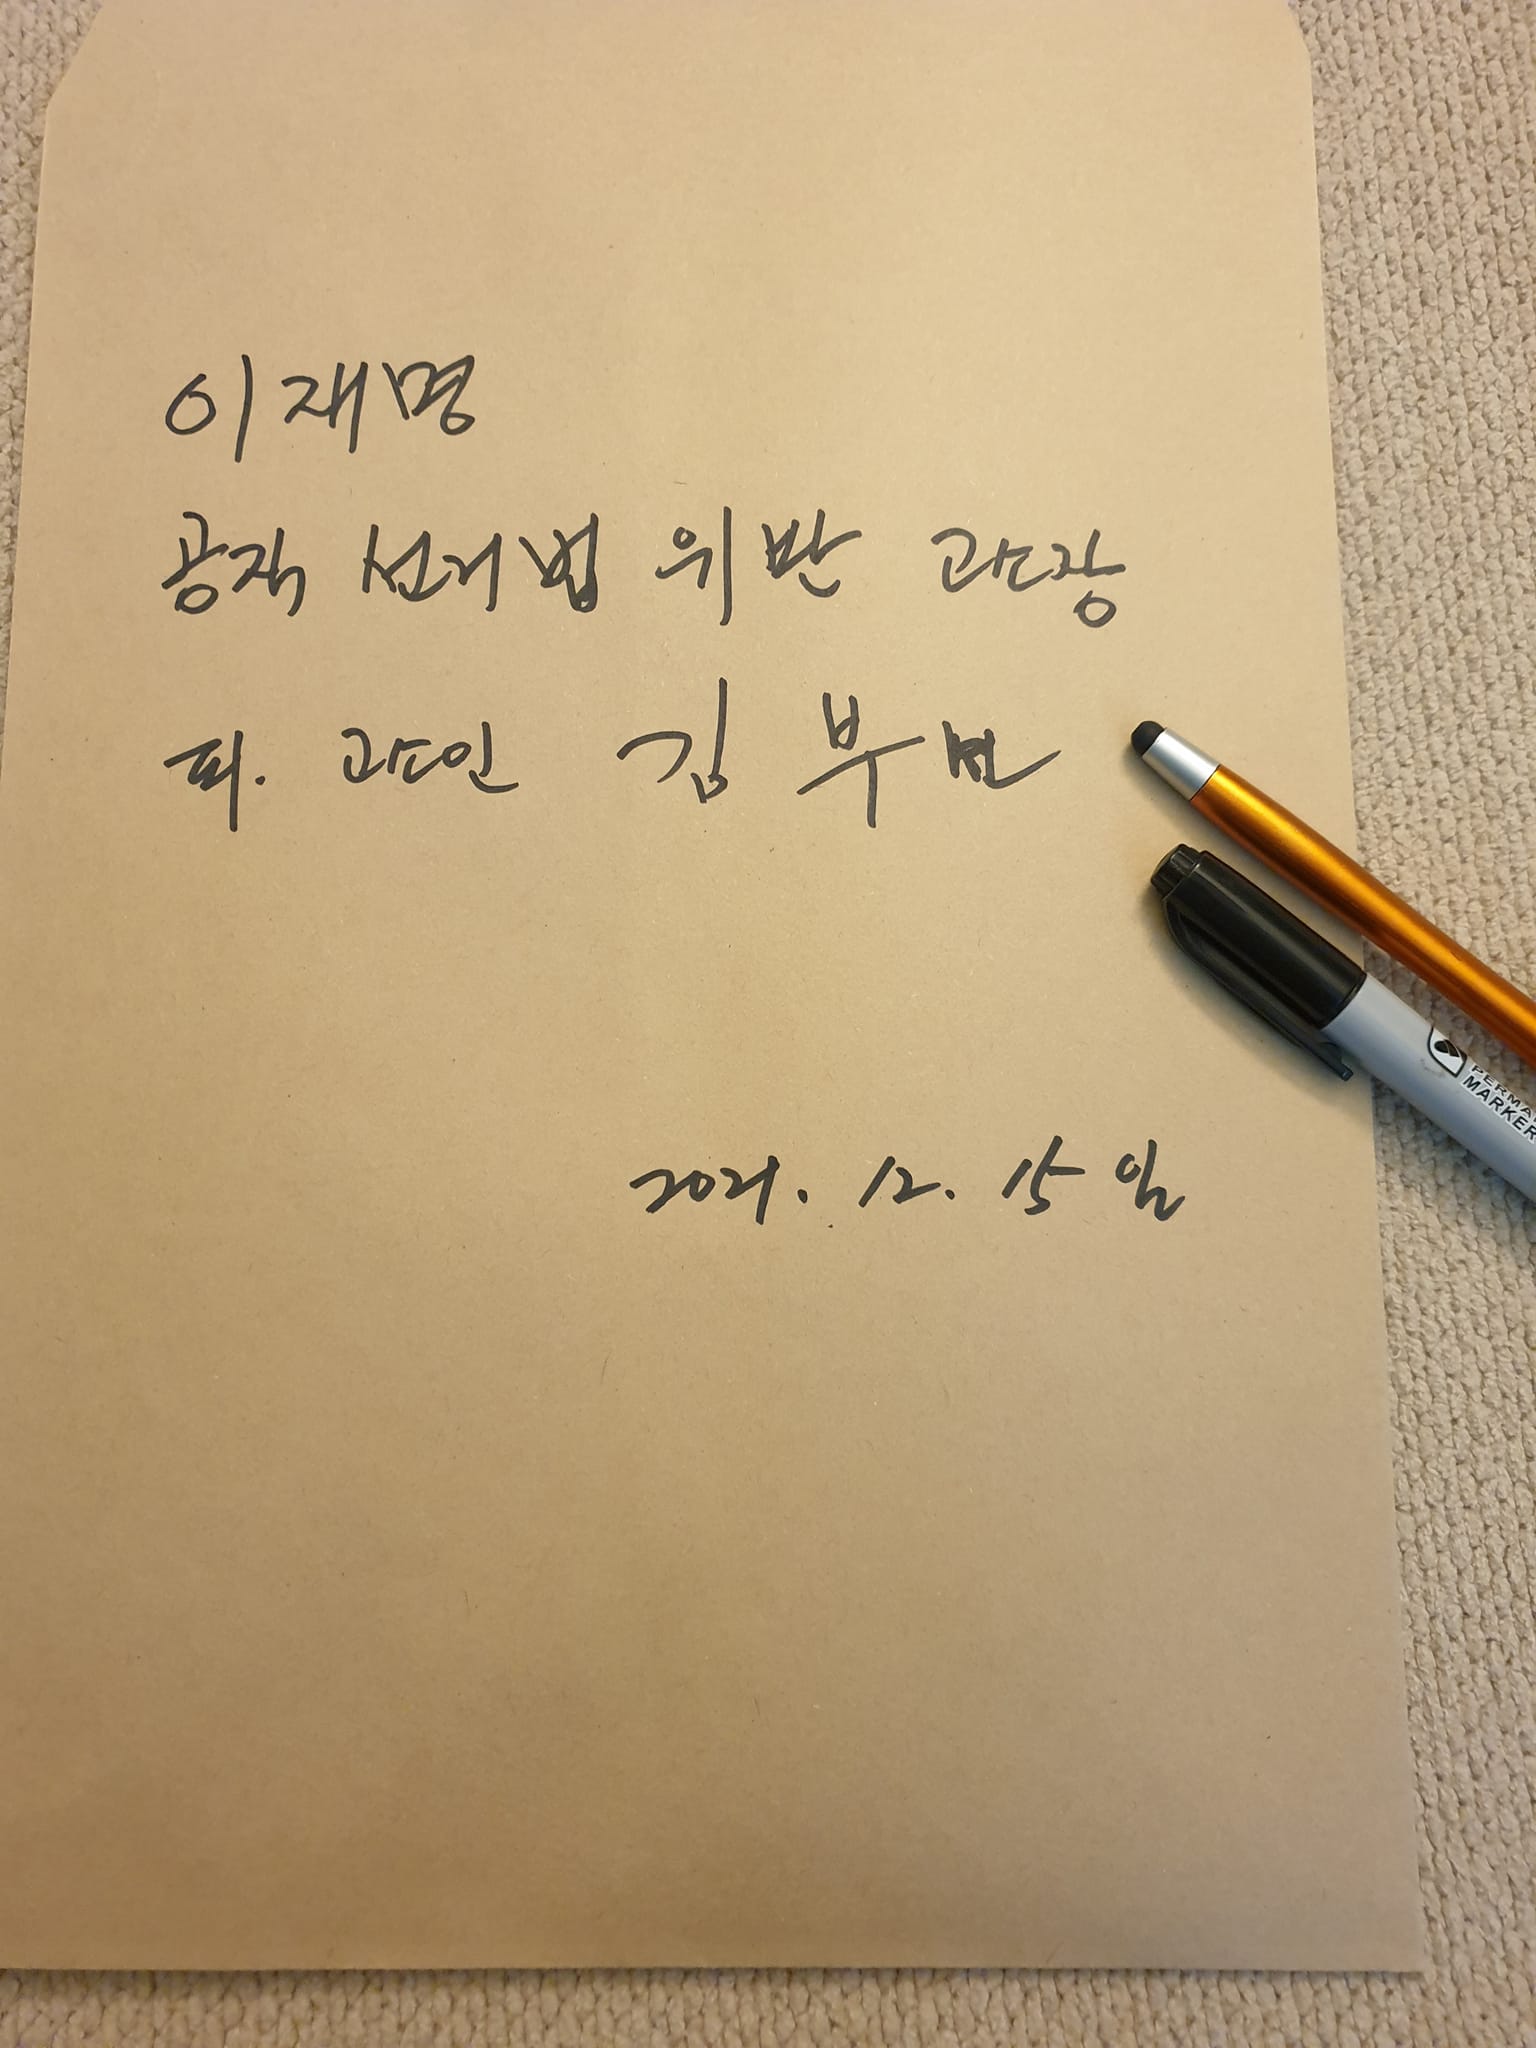 이재명
공직 선거법 위반 고소장
피. 고소인 김부선
2021. 12. 15일
MARKER